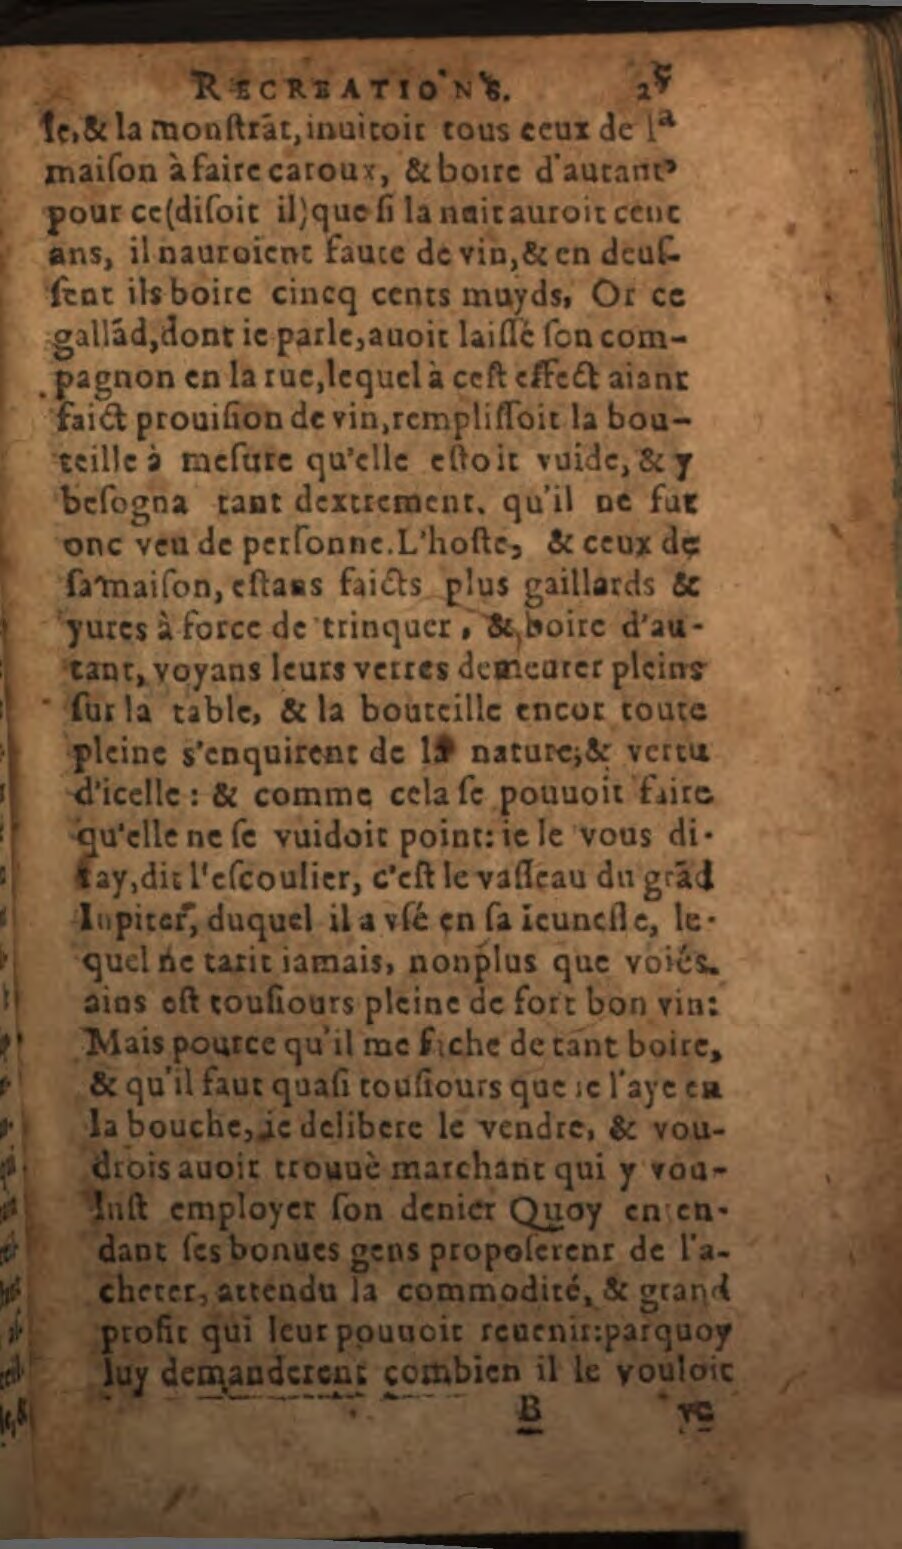 RECREATIONS. 25
le,& la monſtrāt,inuitoit tous ceux de la
maiſon à faire caroux, & boire d'autant,
pour ce(diſoit il)que ſi la nuit auroit cent
ans, il nauroient faute de vin,& en deuſ-
ſent ils boire cincq cents muyds, Or ce
gallād,dont ie parle,auoit laiſſé ſon com-
pagnon en la rue,lequel à ceſt effect aiant
faict prouiſion de vin,rempliſſoit la bou-
teille à meſure qu'elle eſtoit vuide, & y
beſogna tant dextrement. qu'il ne fut
onc veu de perſonne.L'hoſte, & ceux de
ſa maiſon, eſtans faicts plus gaillards &
yures à force de trinquer, & boire d'au-
tant, voyans leurs verres demeurer pleins
ſur la table, & la bouteille encor toute
pleine s'enquirent de la nature,& vertu
d'icelle : & comme cela ſe pouuoit faire
qu'elle ne ſe vuidoit point: ie le vous di-
ray,dit l'eſcoulier, c'eſt le vaſſeau du grād
Iupiter, duquel il a vſé en ſa ieuneſſe, le-
quel ne tarit iamais, nonplus que voiés.
ains eſt touſiours pleine de fort bon vin:
Mais pource qu'il me fiche de tant boire,
& qu'il faut quaſi touſiours que ie l'aye en
la bouche, ie delibere le vendre, & vou-
drois auoir trouuè marchant qui y vou-
luſt employer ſon denier Quoy enten-
dant ſes bonnes gens propoſerent de l'a-
cheter, attendu la commodité, & grand
profit qui leur pouuoit reuenir:parquoy
luy demanderent combien il le vouloit
B ve